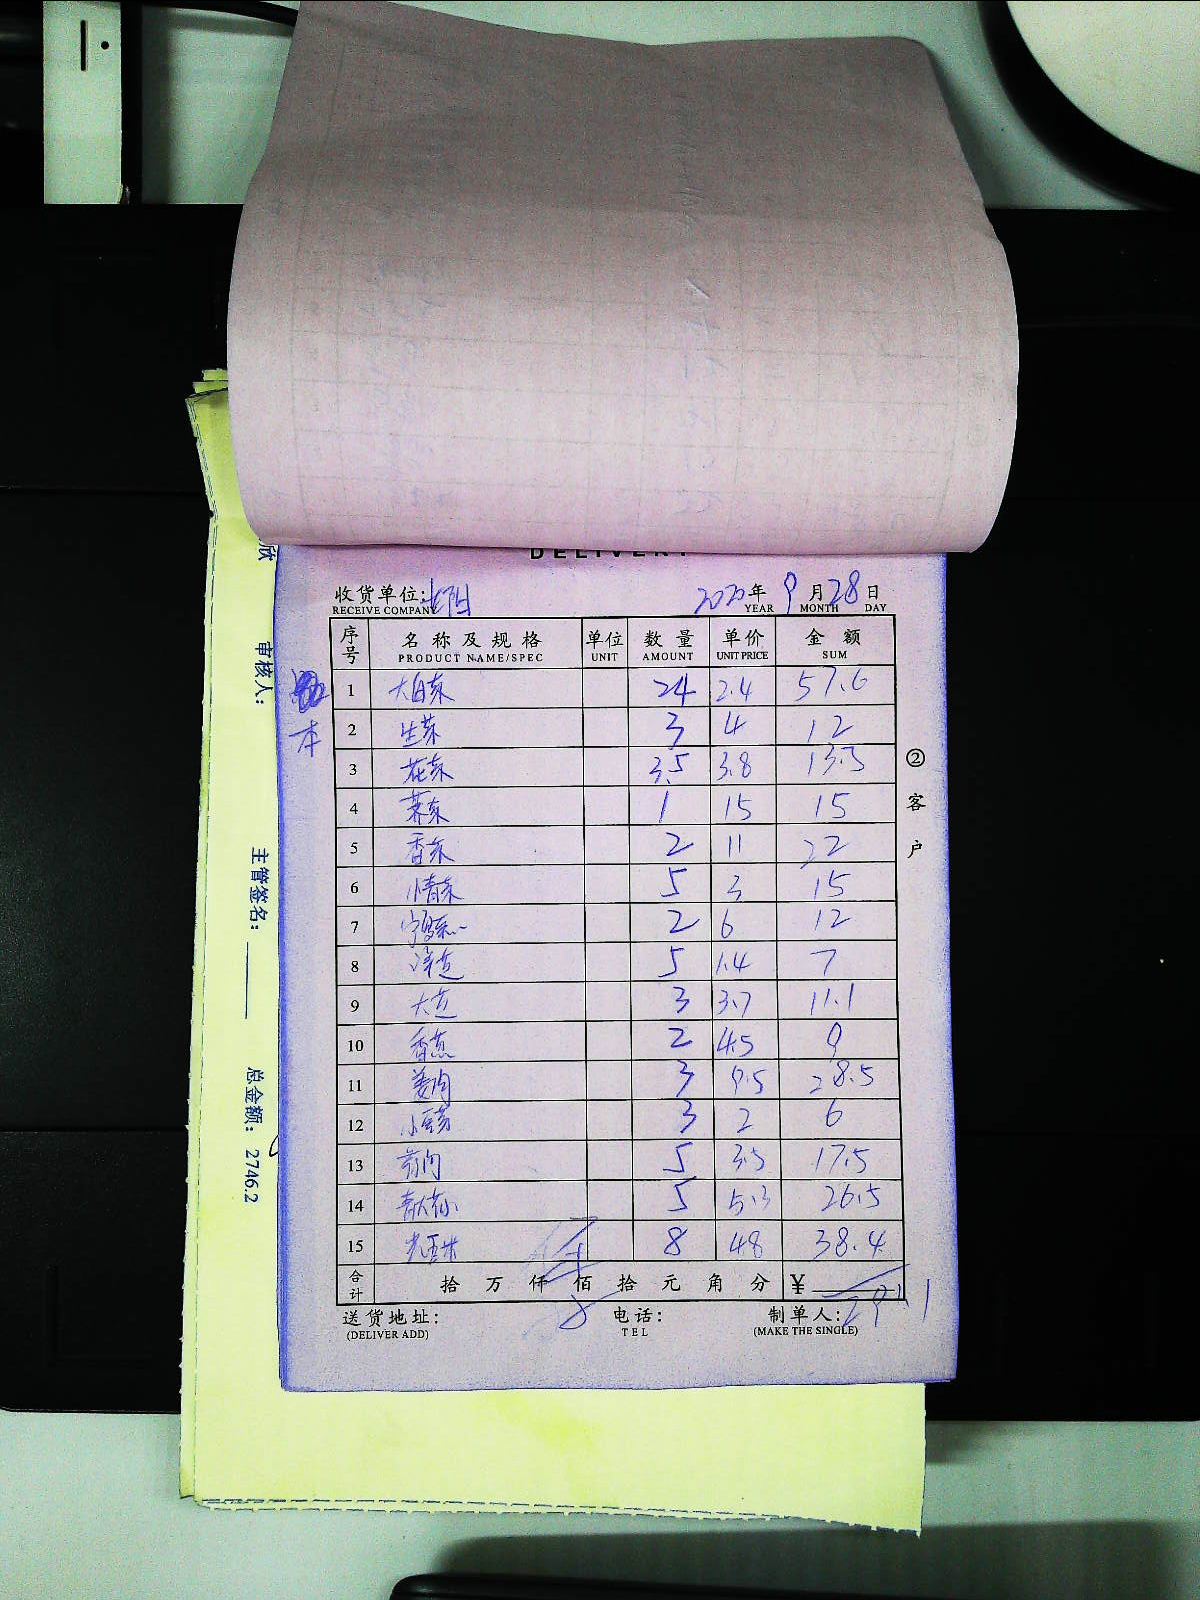 DELIVERY
收货单位:
RECEIVE COMPANY
2020年 9月28日
YEAR MONTH DAY
序号 名称及规格 单位 数量 单价 金额
PRODUCT NAME/SPEC UNIT AMOUNT UNIT PRICE SUM
1 大白菜 24 2.4 57.6
本
2 生菜 3 4 12
3 花菜 3.5 3.8 13.3
4 荠菜 1 15 15
5 香菜 2 11 22
6 小青菜 5 3 15
7 2 6 12
8 洋葱 5 1.4 7
9 大葱 3 3.7 11.1
10 香葱 2 4.5 9
11 姜肉 3 9.5 28.5
12 小豆芽 3 2 6
13 5 3.5 17.5
14 5 5.3 26.5
15 8 4.8 38.4
合计 拾 万 仟 佰 拾 元 角 分 ¥
291.1
送货地址: 电话: 制单人:
(DELIVER ADD) TEL (MAKE THE SINGLE)
②客户
欣
审核人:
主管签名:
总金额: 2746.2